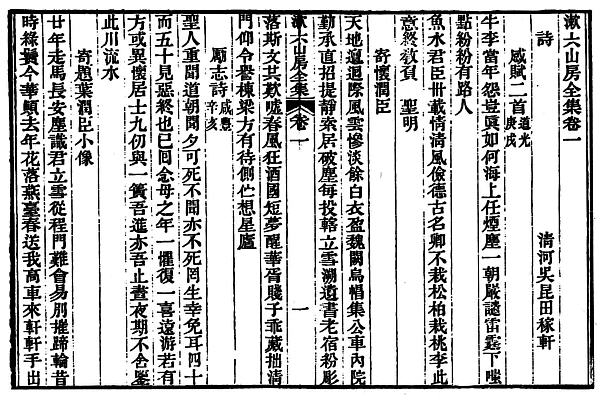 漱六山房全集卷一
清河吳昆田稼軒
詩
感賦二首道光庚戌
牛李當年怨豈眞如何海上任煙塵一朝嚴譴雷霆下嗤
點紛紛有路人
魚水君臣卅載情清風儉德古名卿不栽松柏栽桃李此
意終教負 聖明
寄懷潤臣
天地遭迴際風雲慘淡餘白衣盈魏闕烏帽集公車內院
勤承直招提靜案居破塵每投轄立雪溯遺書老宿粉彫
漱六山房全集 卷一 一
落斯文其歎噓春風狂酒國短夢醒華胥賤子乖藏拙清
門仰令譽棟梁方有待側伫想星廬
勵志詩咸豐辛亥
聖人重聞道朝聞夕可死不聞亦不死罔生幸免耳四十
而五十見惡終也已回念母之年一懼復一喜遠游若有
方或異懷居士九仞與一簣吾進亦吾止晝夜期不舍鑒
此川流水
寄題葉潤臣小像
廿年走馬長安塵識君立雪從程門難會易別摧蹄輪昔
時綠鬢今華顛去年花落燕臺春送我高車來軒軒手出